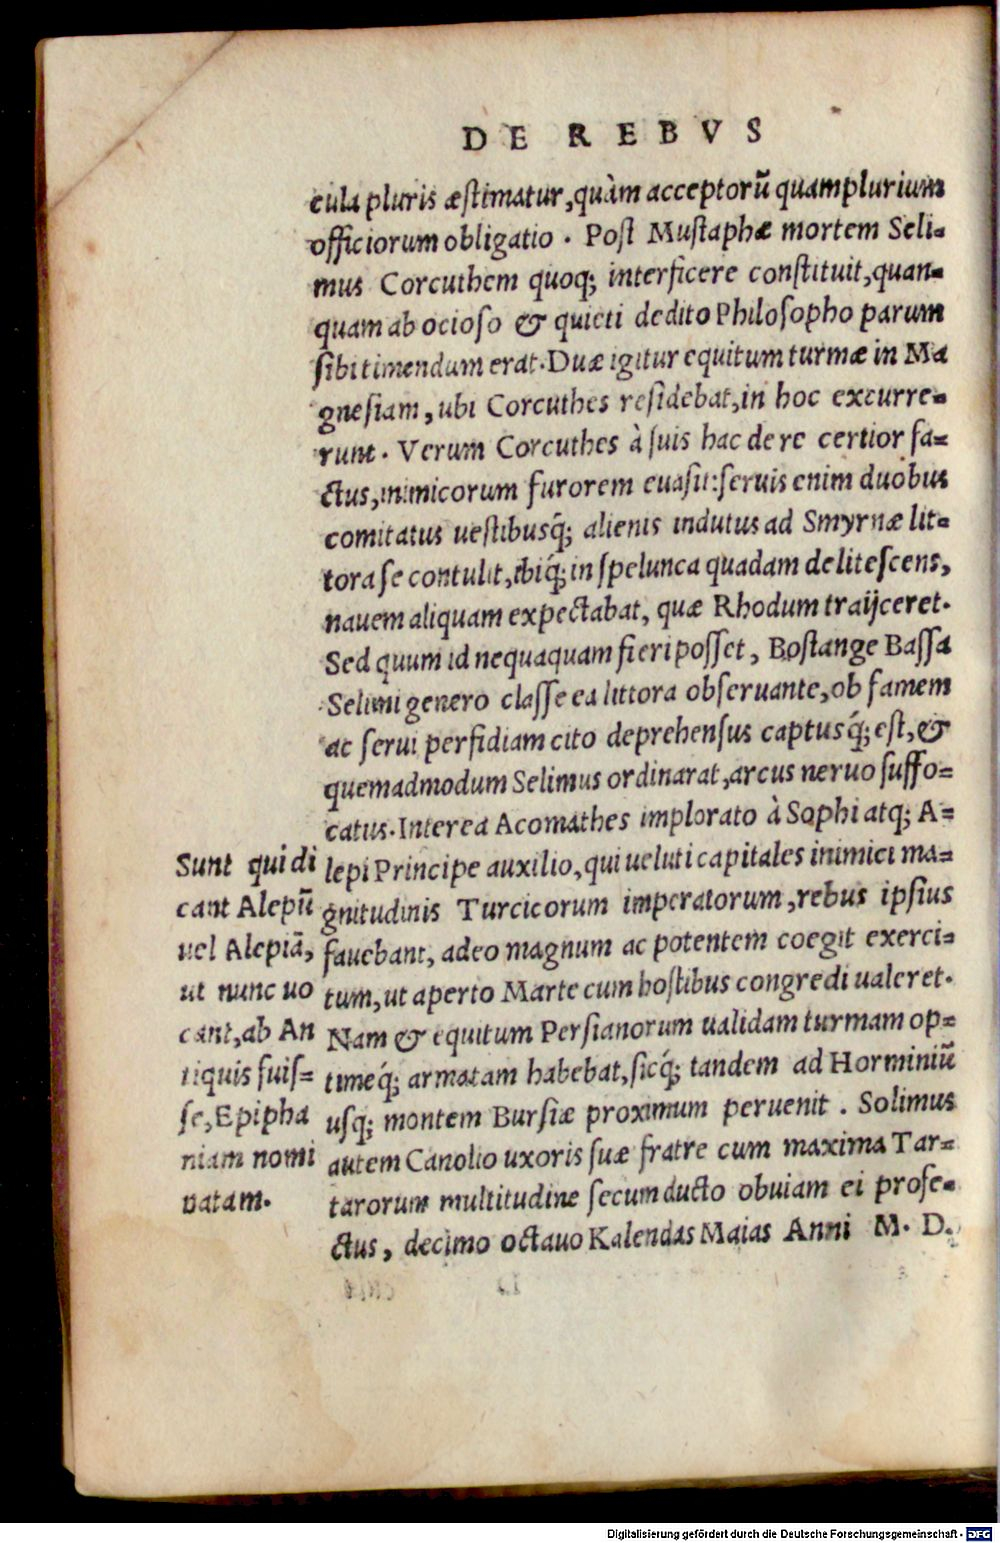 DE REBVS
cula pluris æstimatur, quàm acceptorũ quamplurium
officiorum obligatio. Post Mustaphæ mortem Seli=
mus Corcuthem quoq; interficere constituit, quan=
quam ab ocioso & quieti dedito Philosopho parum
sibi timendum erat. Duæ igitur equitum turmæ in Ma
gnesiam, ubi Corcuthes residebat, in hoc excurre=
runt. Verum Corcuthes à suis hac de re certior fa=
ctus, inimicorum furorem euasit: seruis enim duobus
comitatus uestibusq́; alienis indutus ad Smyrnæ lit=
tora se contulit, ibiq́; in spelunca quadam delitescens,
nauem aliquam expectabat, quæ Rhodum traijceret.
Sed quum id nequaquam fieri posset, Bostange Bassa
Selimi genero classe ea littora obseruante, ob famem
ac serui perfidiam cito deprehensus captusq́; est, &
quemadmodum Selimus ordinarat, arcus neruo suffo=
catus. Interea Acomathes implorato à Sophi atq; A=
lepi Principe auxilio, qui ueluti capitales inimici ma=
gnitudinis Turcicorum imperatorum, rebus ipsius
fauebant, adeo magnum ac potentem coegit exerci=
tum, ut aperto Marte cum hostibus congredi ualeret.
Nam & equitum Persianorum ualidam turmam op=
timeq́; armatam habebat, sicq́; tandem ad Horminiũ
usq; montem Bursiæ proximum peruenit. Solimus
autem Canolio uxoris suæ fratre cum maxima Tar=
tarorum multitudine secum ducto obuiam ei profe=
ctus, decimo octauo Kalendas Maias Anni M. D.
Sunt qui di
cant Alepũ
uel Alepiã,
ut nunc uo
cant, ab An
tiquis suis=
se, Epipha
niam nomi
natam.
Digitalisierung gefördert durch die Deutsche Forschungsgemeinschaft - DFG